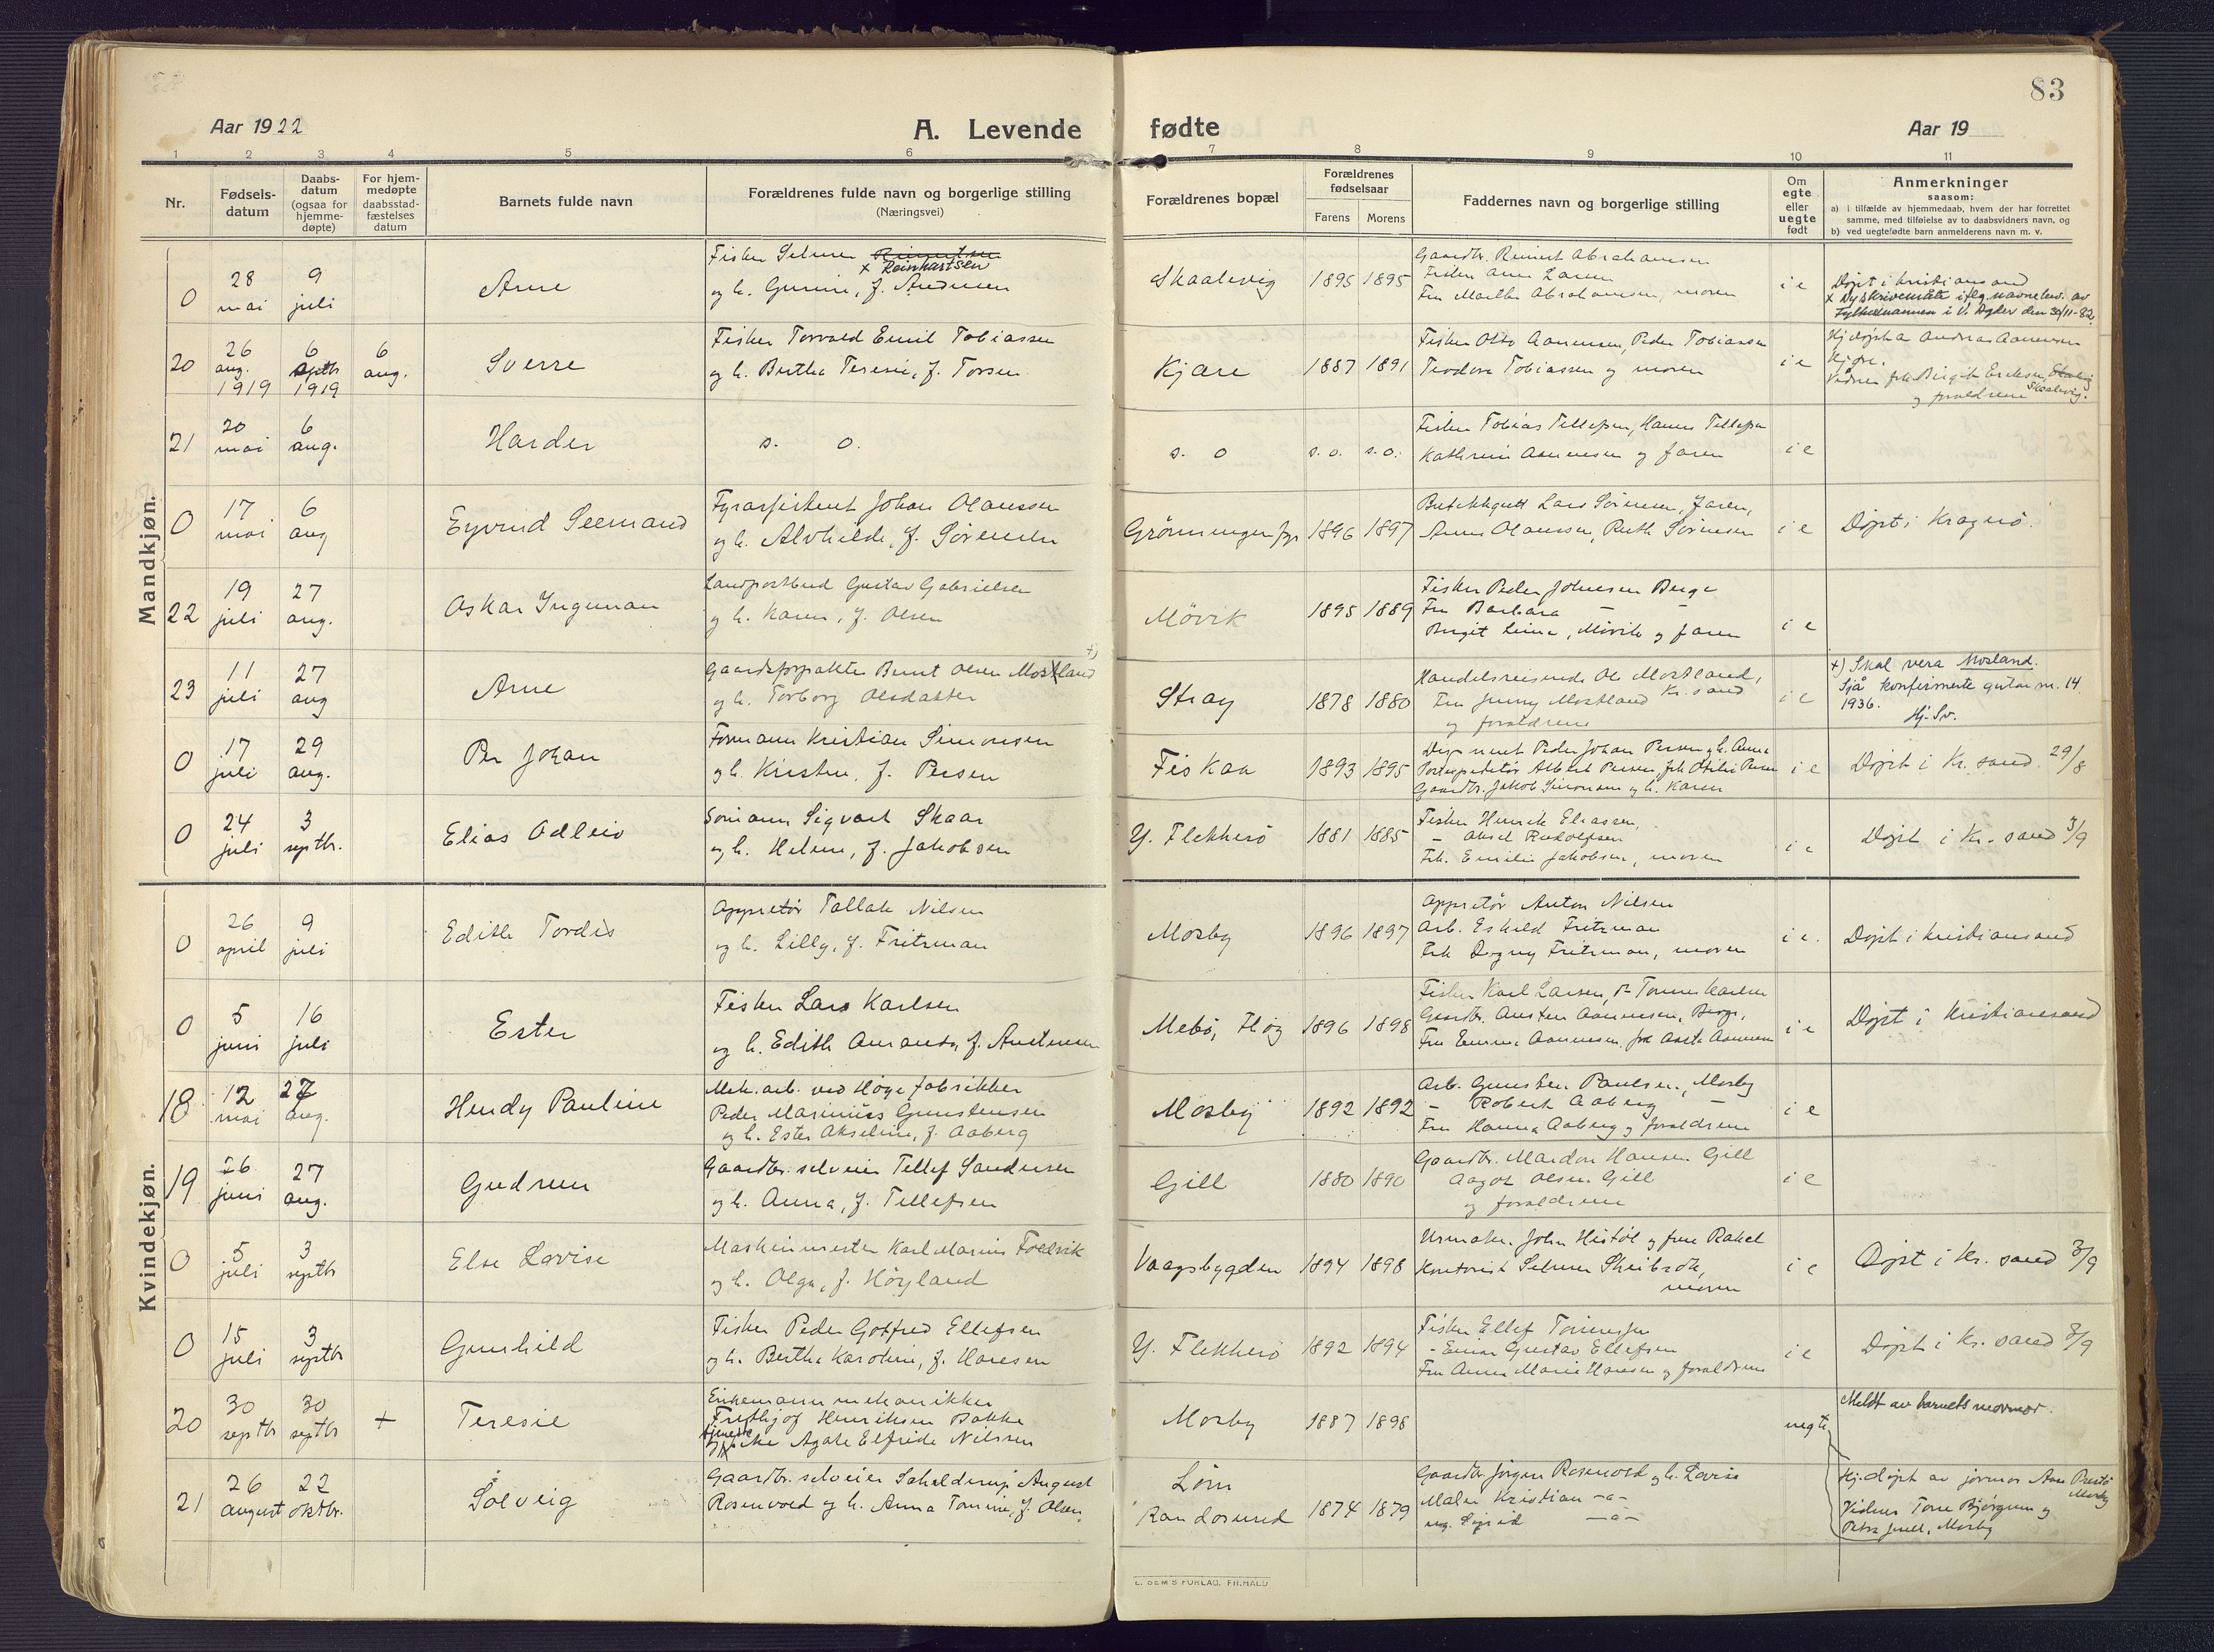 83
Aar 1922
A. Levende fødte
Aar 19
1 2 3 4 5 6 7 8 9 10 11
Nr.
Fødsels-
datum
Daabs-
datum
(ogsaa for
hjemme-
døpte)
For hjem-
medøpte
daabsstad-
fæstelses
datum
Barnets fulde navn
Forældrenes fulde navn og borgerlige stilling
(Næringsvei)
Forældrenes bopæl
Forældrenes
fødselsaar
Farens Morens
Faddernes navn og borgerlige stilling
Om
egte
eller
uegte
født
Anmerkninger
saasom:
a) i tilfælde av hjemmedaab, hvem der har forrettet
samme, med tilføielse av to daabsvidners navn, og
b) ved uegtefødte barn anmelderens navn m. v.
Mandkjøn.
0 28 mai 9 juli Arne
Fisker Selmer Reinhartsen
og h. Gurine, f. Andersen
Skaalevig 1895 1895
Gaardbr. Reinert Abrahamsen
Fisker Larsen
Fru Marthe Abrahamsen, moren
i e
Døpt i Kristiansand
x Ny skrivemåte iflg. navnebev. av
Fylkesmannen i V. Agder den 30/11-82
20 26 aug. 1919 6 septb 1919 6 aug. Sverre
Fisker Torvald Emil Tobiassen
og h. Berthe Teresie, f. Torsen
Kjære 1887 1891
Fisker Otto Aanensen, Peder Tobiassen
Teodora Tobiassen og moren
i e
Hjdøpt a Andreas Aanensen
Kjære.
Vidner frk Birgit Eriksen, Skaalevig.
og forældrene
21 20 mai 6 aug. Harder
s. o.
s. o s. o. s. o.
Fisker Tobias Tellefsen, Hanna Tellefsen
Kathrine Aanensen og faren
i e
0 17 mai 6 aug Eyvind Seemand
Fyrassistent Johan Olaussen
og h. Alvhilde, f. Sørensen
Grønningen fyr 1896 1897
Lars Sørensen, faren,
Anna Olaussen, Ruth Sørensen
i e
Døpt i Kragerø.
22 19 juli 27 aug. Oskar Ingeman
Landpostbud Gustav Gabrielsen
og h. Karen, f. Olsen
Møvik 1895 1889
Fisker Peder Johnsen Berge
Fru Barbara — —
Birgit Leine, Møvik og faren
i e
23 11 juli 27 aug Arne
Gaardsforpakter Bernt Olsen Mostland +)
og h. Torborg Olsdatter
Stray 1878 1880
Handelsreisende Ole Mostland,
Fru Jenny Mostland Kr.sand
og forældrene
i e
+) Skal vera Mosland.
Sjå konfirmerte gutar nr. 14
1936.
Hj. Sv.
0 17 juli 29 aug. Per Johan
Formann Kristian Simonsen
og h. Kirsten, f. Persen
Fiskaa 1893 1895
Peder Johan Persen og h. Anna
Postexpeditør Albert Persen, frk Otilie Persen
Gaardbr. Jakob Simonsen og h. Karen
i e
Døpt i Kr. sand. 29/8
0 24 juli 3 septbr. Elias Odleiv
Sømann Sigvart Skaar
og h. Helene, f. Jakobsen
Y. Flekkerø 1881 1885
Fisker Henrik Eliassen,
— Aksel Rudolfsen
Frk. Emilie Jakobsen, moren
i e
Døpt i Kr. sand 3/9
Kvindekjøn.
0 26 april 9 juli Edith Tordis
Appretør Tallak Nilsen
og h. Lilly, f. Fritzman
Mosby 1896 1897
Appretør Anton Nilsen
Arb. Eskild Fritzman
Frk Dagny Fritzman, moren
i e.
Døpt i Kristiansand
0 5 juni 16 juli Ester
Fisker Lars Karlsen
og h. Edith Amanda, f. Austensen
Mebø, Fløg 1896 1898
Fisker Karl Larsen, Tomine Karlsen
Gaardbr. Austen Aanensen, Berge,
Fru Emma Aanensen, frk Aasta Aanensen
i e
Døpt i Kristiansand
18 12 mai 27 aug. Hendy Pauline
Mek. arb. ved Høye fabrikker
Peder Marinius Gunstensen
og h. Ester Akseline, f. Aaberg
Mosby 1892 1892
Arb. Gunsten Paulsen, Mosby
— Robert Aaberg —
Fru Hanna Aaberg og forældrene
i e
19 26 juni 27 aug. Gudrun
Gaardbr. selveier Tellef Sandersen
og h. Anna, f. Tellefsen
Gill 1880 1890
Gaardbr. Mardon Hansen Gill
Aagot Olsen Gill
og forældrene
i e
0 5 juli 3 septbr Else Lovise
Maskinmester Karl Marius Foldvik
og h. Olga, f. Høyland
Vaagsbygden 1894 1898
Urmaker John Histøl og frue Rakel
Kontorist Selmer Skeibrok,
moren
i e
Døpt i Kr. sand 3/9
0 15 juli 3 septbr Gunhild
Fisker Peder Gotfred Ellefsen
og h. Berthe Karoline, f. Hansen
Y. Flekkerø 1892 1894
Fisker Ellef Tønnesen
- Einar Gustav Ellefsen
Fru Anna Marie Hansen og forældrene
i e
Døpt i Kr. sand 3/9
20 30 septbr 30 septbr + Teresie
Enkemann mekanikker
Fridthjof Henriksen Bakke
tjeneste pike Agate Elfride Nilssen
Mosby 1887 1898
uegte
Meldt av barnets mormor.
21 26 august 22 oktbr. Solveig
Gaardbr. selveier Schelderup August
Rosenvold og h. Anna Tomine, f. Olsen
Løm
Randøsund 1874 1879
Gaardbr. Jørgen Rosenvold og h. Lovise
Maler Kristian —"—
ug. Sigrid —"—
Hj. døpt av jormor Aase
Mosby
Vidner Tone Bjørgum og
Petra Juell, Mosby
E. SEM'S FORLAG, FR.HALD